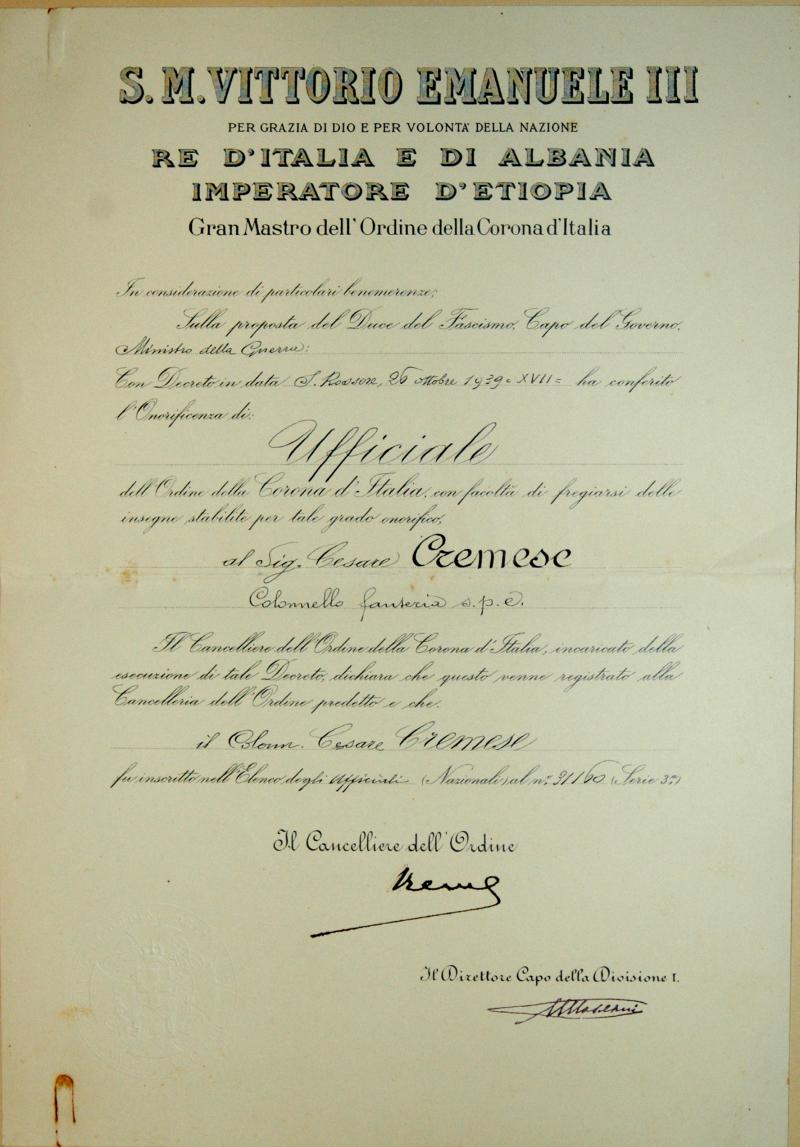 S. M. VITTORIO EMANUELE III
PER GRAZIA DI DIO E PER VOLONTA' DELLA NAZIONE
RE D'ITALIA E DI ALBANIA
IMPERATORE D'ETIOPIA
Gran Mastro dell'Ordine della Corona d'Italia
In considerazione di particolari benemerenze;
Sulla proposta del Duce del Fascismo, Capo del Governo,
Ministro della Guerra:
Con Decreto in data S. Rossore, 26 ottobre 1939 = XVII = ha conferito
l'Onorificenza di:
Ufficiale
dell'Ordine della Corona d'Italia, con facoltà di fregiarsi delle
insegne stabilite per tale grado onorifico,
al Sig. Cesare Cremese
Colonnello fanteria s.p.e.
Il Cancelliere dell'Ordine della Corona d'Italia, incaricato della
esecuzione di tale Decreto, dichiara che questo venne registrato alla
Cancelleria dell'Ordine predetto e che
il Colonn. Cesare Cremese
fu inscritto nell'Elenco degli Ufficiali (Nazionali) al n° 31160 (Serie 3ª)
Il Cancelliere dell'Ordine
Il Direttore Capo della Divisione I.